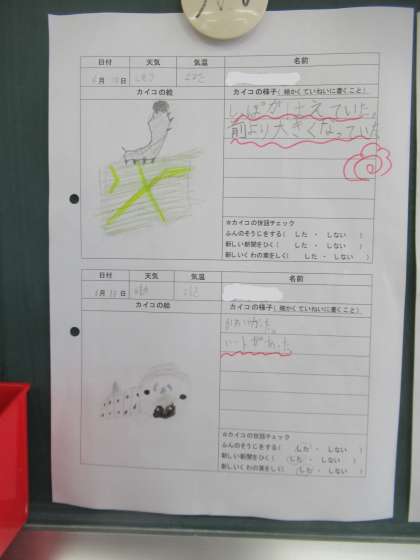 日付 天気 気温 名前
6月 日
カイコの絵 カイコの様子(細かくていねいに書くこと)
しっぽがはえていた。
前より大きくなっていた
☆カイコの世話チェック
ふんのそうじをする( した ・ しない )
新しい新聞をひく( した ・ しない )
新しいくわの葉をしく( した ・ しない )
日付 天気 気温 名前
月 日
カイコの絵 カイコの様子(細かくていねいに書くこと)
かわいかった。
ハートがあった
☆カイコの世話チェック
ふんのそうじをする( した ・ しない )
新しい新聞をひく( した ・ しない )
新しいくわの葉をしく( した ・ しない )